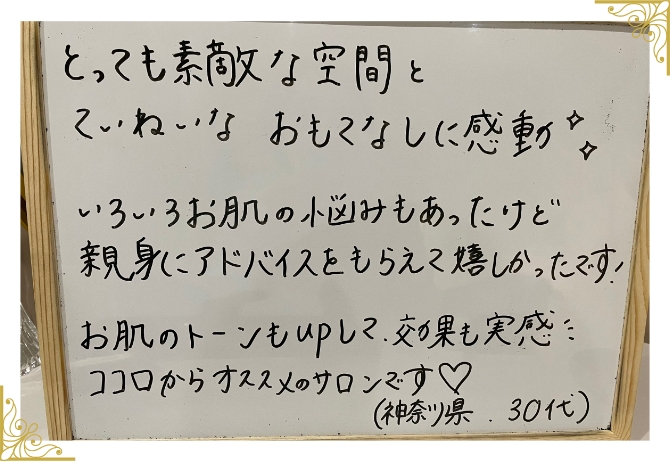 とっても素敵な空間と
ていねいな おもてなしに感動✧✧
いろいろお肌の悩みもあったけど
親身にアドバイスをもらえて嬉しかったです!
お肌のトーンもupして、効果も実感::
ココロからオススメのサロンです♡
(神奈川県. 30代)